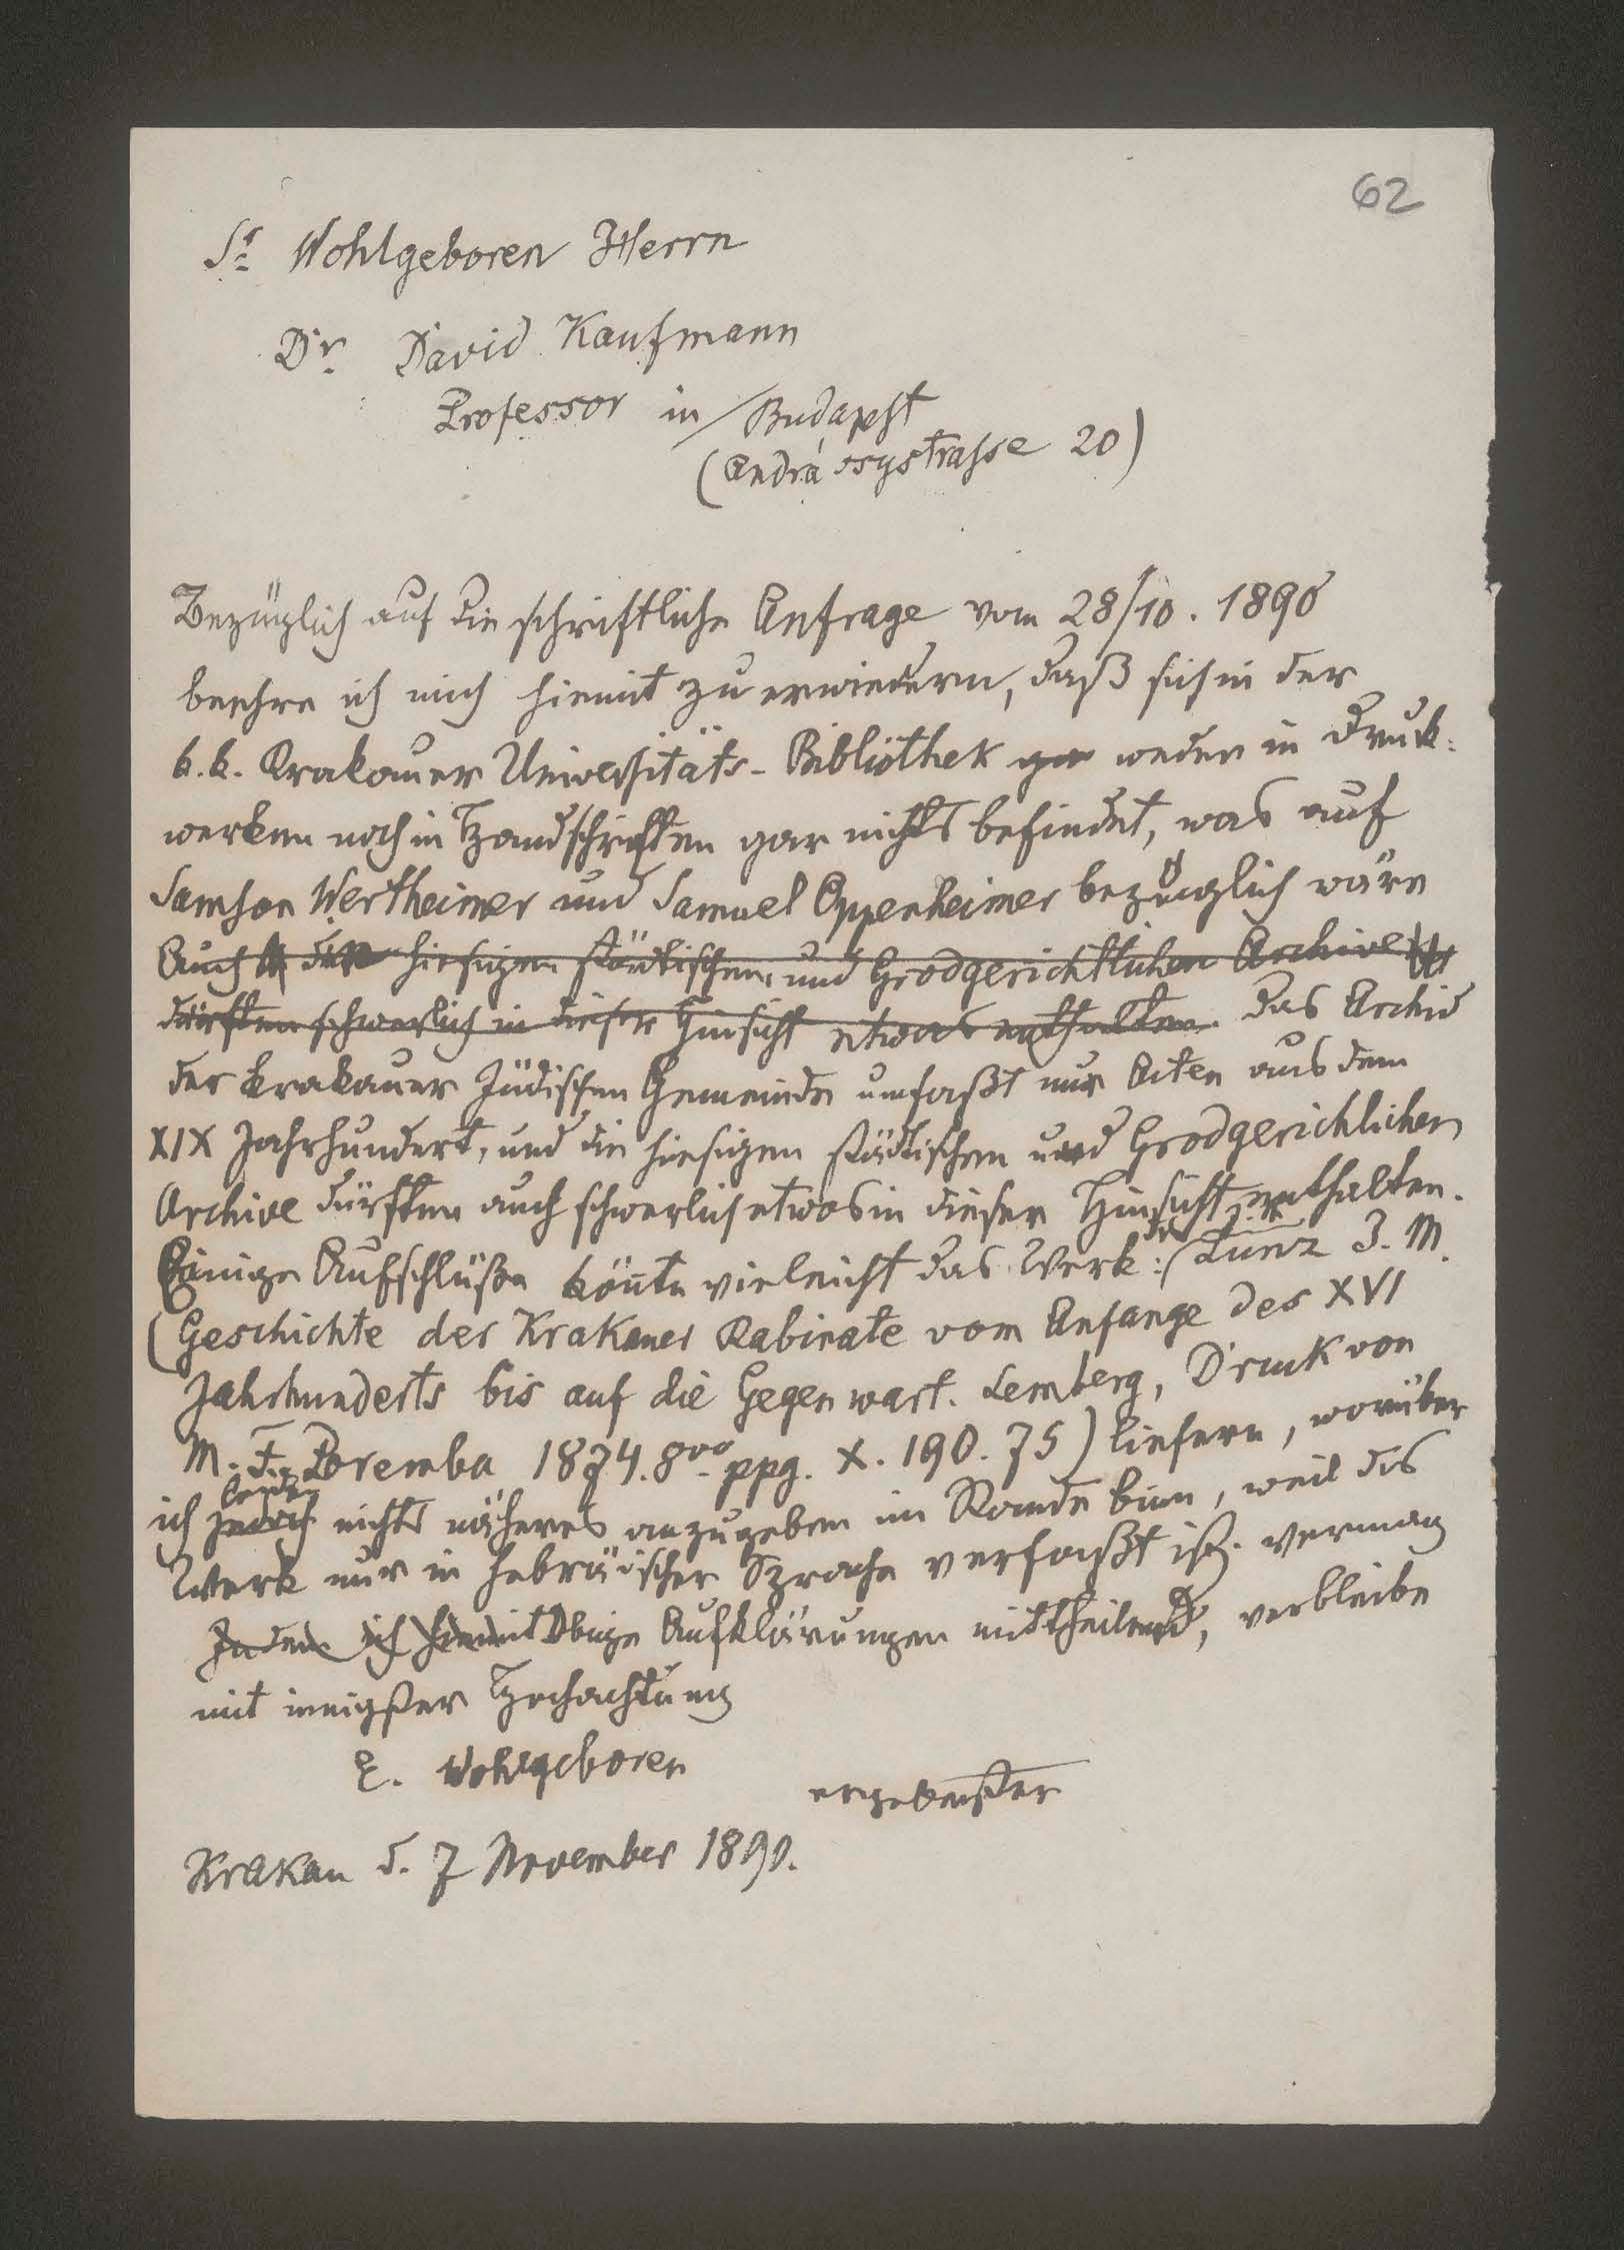 62
Sr Wohlgeboren Herrn
Dr. David Kaufmann
Professor in Budapest
(Andrássystrasse 20)
Bezüglich auf die schriftliche Anfrage vom 28/10. 1890
beehre ich mich hiemit zu erwiedern, daß sich in der
k.k. Krakauer Universitäts-Bibliothek gar weder in Druck-
werken noch in Handschriften gar nichts befindet, was auf
Samson Wertheimer und Samuel Oppenheimer bezüglich wäre
Auch die hiesigen städtischen und Grodgerichtlichen Archive
dürften schwerlich in dieser Hinsicht etwas enthalten. Das Archiv
der Krakauer Jüdischen Gemeinde umfaßt nur Acten aus dem
XIX Jahrhundert, und die hiesigen städtischen und Grodgerichlichen
Archive dürften auch schwerlich etwas in dieser Hinsicht enthalten.
Einige Aufschlüße könnte vieleicht das Werk: Zunz J. M.
(Geschichte der Krakauer Rabinate vom Anfange des XVI
Jahrhunderts bis auf die Gegenwart. Lemberg, Druck von
M. F. Poremba 1874. 8vo ppg. X. 190. 75) liefern, worüber
leider
ich jedoch nichts näheres anzugeben im Stande bin, weil das
Werk nur in hebräischer Sprache verfaßt ist. vermag
Indem ich hiemit Obige Aufklärungen mittheilend, verbleibe
mit innigster Hochachtung
E. Wohlgeboren
ergebenster
Krakau d. 7 November 1890.